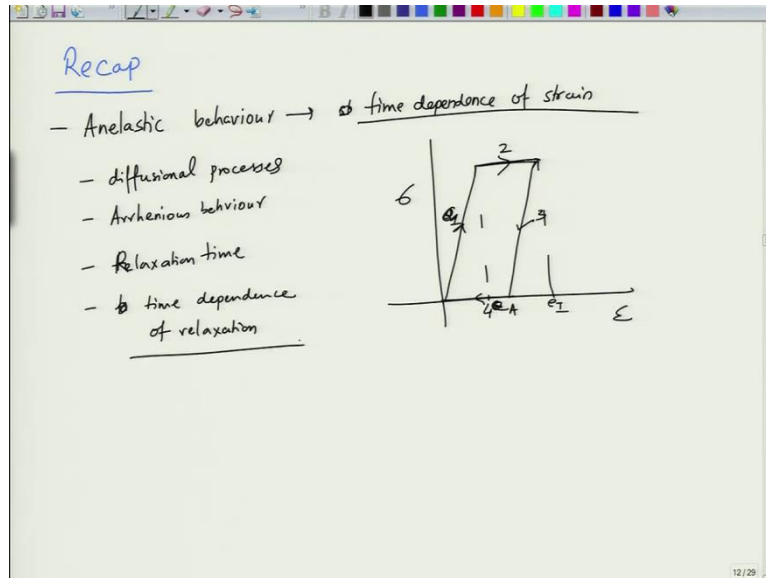 Recap
- Anelastic behaviour → time dependence of strain
- diffusional processes
- Arrhenious behviour
- Relaxation time
- time dependence
of relaxation
σ
1
2
3
4
e_A
e_I
ε
12 / 29